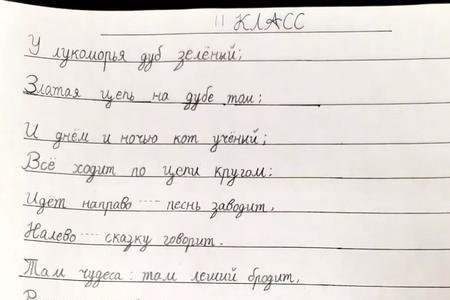 11 КЛАСС
У лукоморья дуб зелёный;
Златая цепь на дубе том;
И днём и ночью кот учёный;
Всё ходит по цепи кругом;
Идёт направо ---- песнь заводит,
Налево ---- сказку говорит.
Там чудеса: там леший бродит,